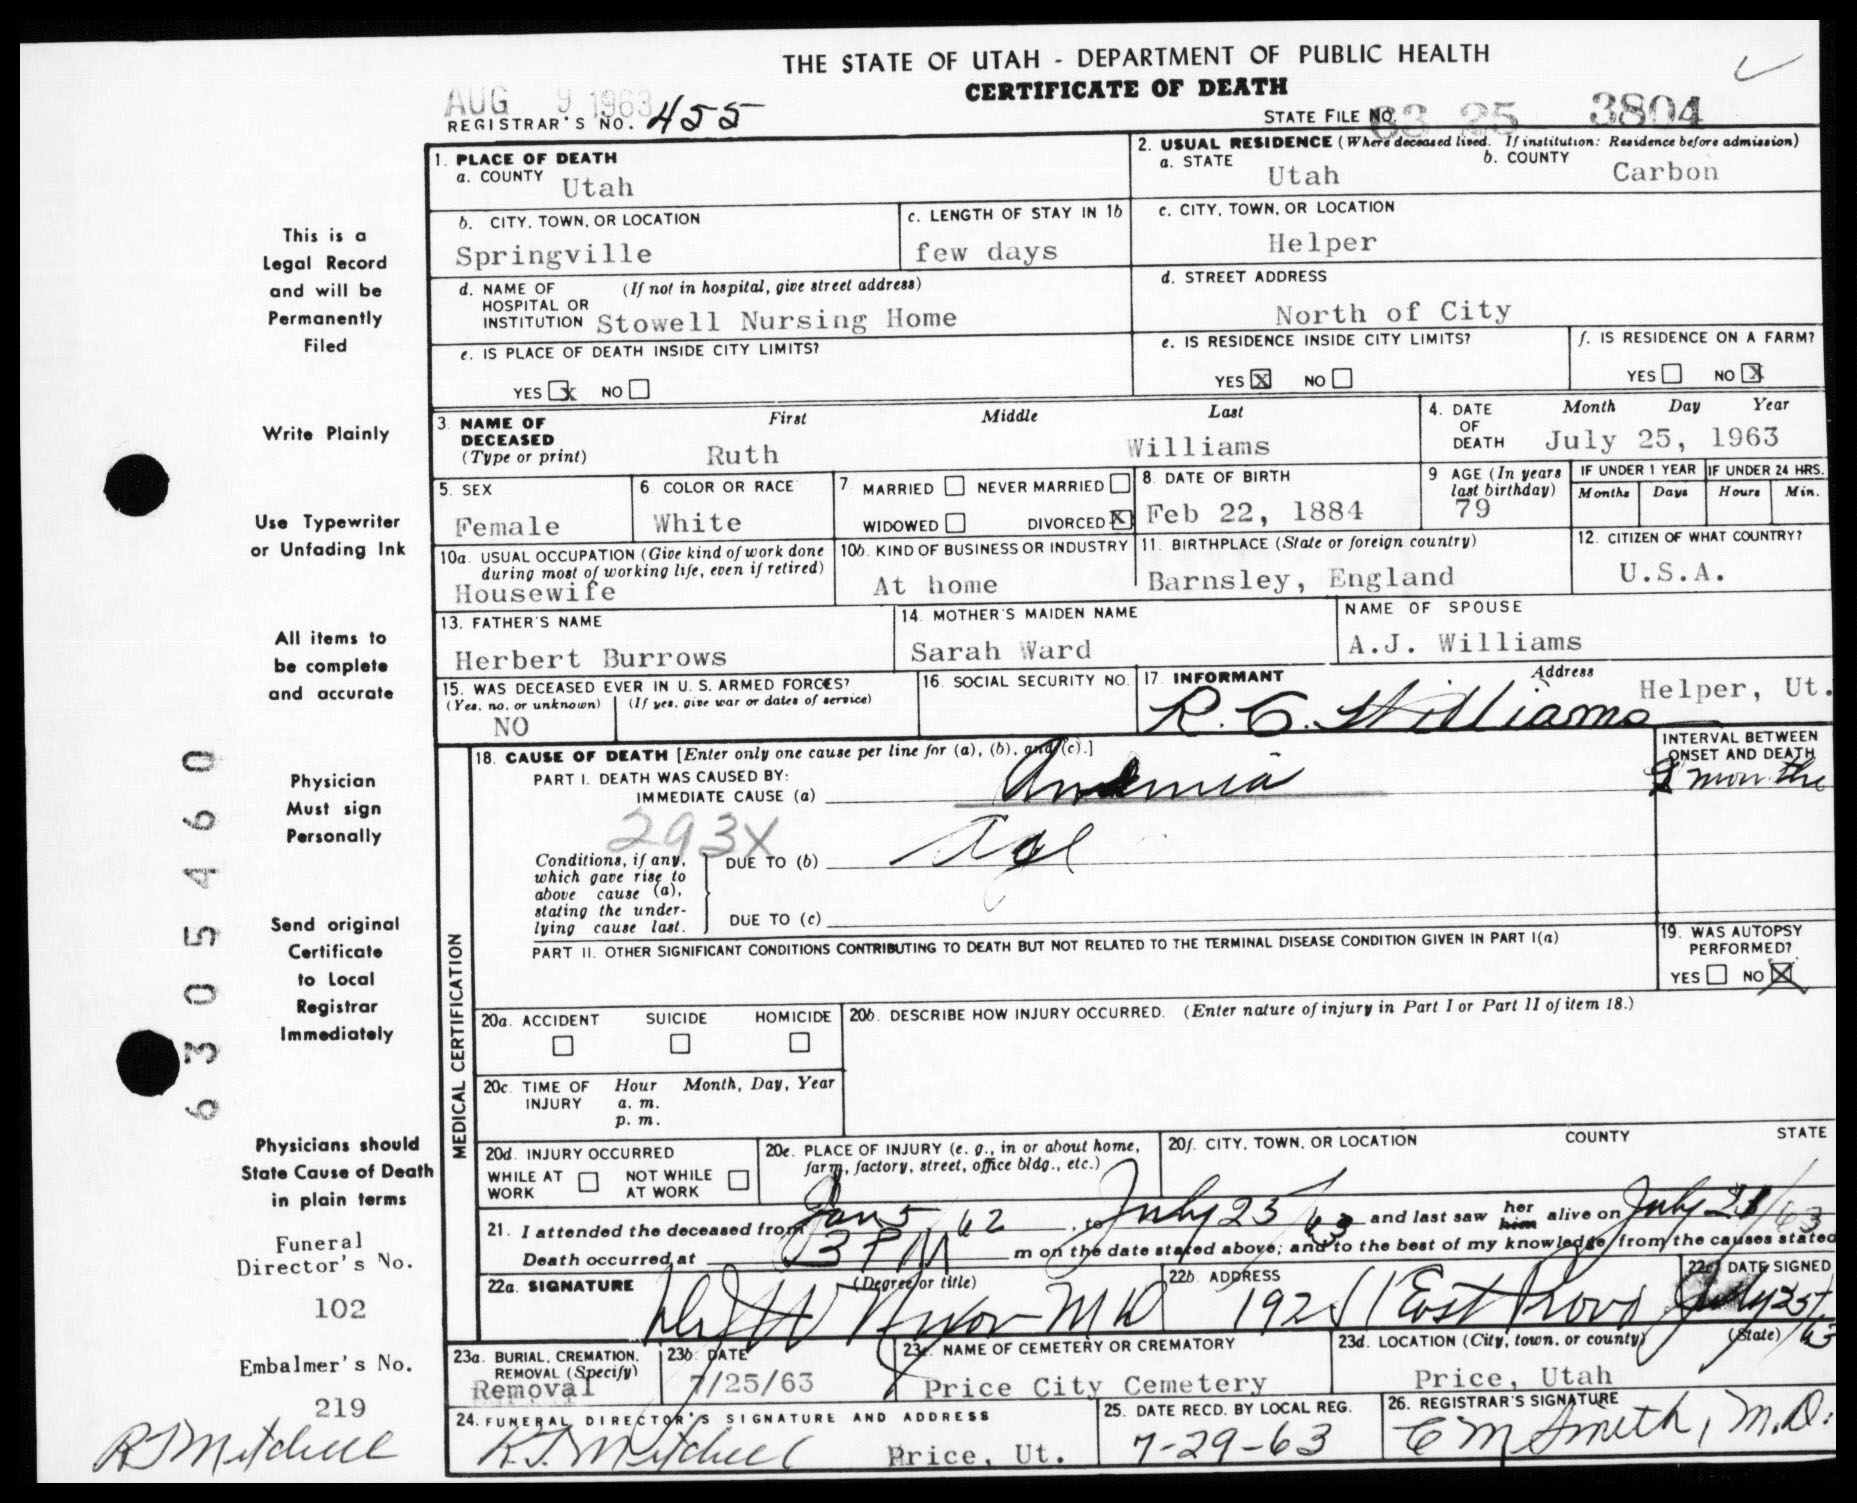 THE STATE OF UTAH - DEPARTMENT OF PUBLIC HEALTH
CERTIFICATE OF DEATH
AUG 9 1963
REGISTRAR'S NO. 455
STATE FILE NO. 63 25 3804
This is a
Legal Record
and will be
Permanently
Filed
Write Plainly
Use Typewriter
or Unfading Ink
All items to
be complete
and accurate
Physician
Must sign
Personally
Send original
Certificate
to Local
Registrar
Immediately
Physicians should
State Cause of Death
in plain terms
Funeral
Director's No.
102
Embalmer's No.
219
R T Mitchell
6305460
1. PLACE OF DEATH
a. COUNTY Utah
2. USUAL RESIDENCE (Where deceased lived. If institution: Residence before admission)
a. STATE Utah b. COUNTY Carbon
b. CITY, TOWN, OR LOCATION Springville
c. LENGTH OF STAY IN 1b few days
c. CITY, TOWN, OR LOCATION Helper
d. NAME OF (If not in hospital, give street address)
HOSPITAL OR
INSTITUTION Stowell Nursing Home
d. STREET ADDRESS
North of City
e. IS PLACE OF DEATH INSIDE CITY LIMITS?
YES X NO
e. IS RESIDENCE INSIDE CITY LIMITS?
YES X NO
f. IS RESIDENCE ON A FARM?
YES NO X
3. NAME OF DECEASED (Type or print)
First Middle Last
Ruth Williams
4. DATE OF DEATH Month Day Year
July 25, 1963
5. SEX Female
6. COLOR OR RACE White
7. MARRIED NEVER MARRIED
WIDOWED DIVORCED X
8. DATE OF BIRTH Feb 22, 1884
9 AGE (In years last birthday) 79
IF UNDER 1 YEAR Months Days
IF UNDER 24 HRS. Hours Min.
10a. USUAL OCCUPATION (Give kind of work done
during most of working life, even if retired)
Housewife
10b. KIND OF BUSINESS OR INDUSTRY
At home
11. BIRTHPLACE (State or foreign country)
Barnsley, England
12. CITIZEN OF WHAT COUNTRY?
U.S.A.
13. FATHER'S NAME
Herbert Burrows
14. MOTHER'S MAIDEN NAME
Sarah Ward
NAME OF SPOUSE
A.J. Williams
15. WAS DECEASED EVER IN U.S. ARMED FORCES?
(Yes, no, or unknown) (If yes, give war or dates of service)
NO
16. SOCIAL SECURITY NO.
17. INFORMANT Address
R. C. Williams Helper, Ut.
MEDICAL CERTIFICATION
18. CAUSE OF DEATH [Enter only one cause per line for (a), (b), and (c).]
PART I. DEATH WAS CAUSED BY:
IMMEDIATE CAUSE (a) Anemia
INTERVAL BETWEEN
ONSET AND DEATH
months
293X
Conditions, if any,
which gave rise to
above cause (a),
stating the under-
lying cause last.
DUE TO (b) Age
DUE TO (c)
PART II. OTHER SIGNIFICANT CONDITIONS CONTRIBUTING TO DEATH BUT NOT RELATED TO THE TERMINAL DISEASE CONDITION GIVEN IN PART I(a)
19. WAS AUTOPSY
PERFORMED?
YES NO X
20a. ACCIDENT SUICIDE HOMICIDE
20b. DESCRIBE HOW INJURY OCCURRED. (Enter nature of injury in Part I or Part II of item 18.)
20c. TIME OF INJURY Hour Month, Day, Year
a. m.
p. m.
20d. INJURY OCCURRED
WHILE AT WORK NOT WHILE AT WORK
20e. PLACE OF INJURY (e. g., in or about home,
farm, factory, street, office bldg., etc.)
20f. CITY, TOWN, OR LOCATION COUNTY STATE
21. I attended the deceased from Jan 5 62, to July 25/63 and last saw her him alive on July /63
Death occurred at 3 PM m on the date stated above; and to the best of my knowledge, from the causes stated
22a. SIGNATURE (Degree or title)
MD
22b. ADDRESS
East Provo
22c. DATE SIGNED
July 25/63
23a. BURIAL, CREMATION,
REMOVAL (Specify)
Removal
23b. DATE
7/25/63
23c. NAME OF CEMETERY OR CREMATORY
Price City Cemetery
23d. LOCATION (City, town, or county) (State)
Price, Utah
24. FUNERAL DIRECTOR'S SIGNATURE AND ADDRESS
R.T. Mitchell Price, Ut.
25. DATE RECD. BY LOCAL REG.
7-29-63
26. REGISTRAR'S SIGNATURE
C M Smith, M.D.